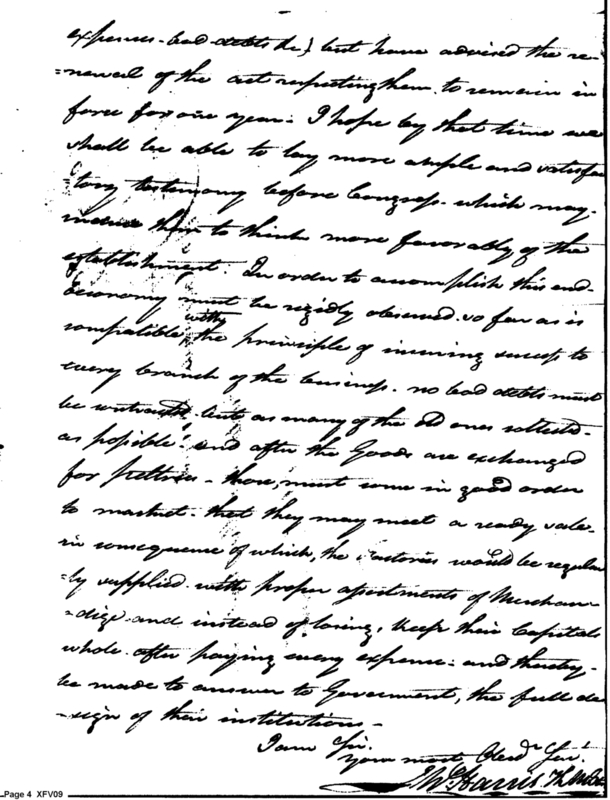 expenses - bad debts &c) but have advised the re-
=newal of the act respecting them to remain in
force for one year. I hope by that time we
shall be able to lay more ample and satisfac
=tory testimony before Congress which may
induce them to think more favorably of the
establishment. In order to accomplish this end
Oeconomy must be rigidly observed so far as is
compatible with the principle of insuring success to
every branch of the business. no bad debts must
be contracted but as many of the old ones collected
as possible: and after the Goods are exchanged
for peltries - those, must come in good order
to market - that they may meet a ready sale -
in consequence of which, the Factories would be regular
=ly supplied with proper assortments of Merchan
=dize and instead of losing, keep their Capitals
whole after paying every expense: and thereby
be made to answer to Government, the full de
=sign of their institutions -
I am Sir.
your most Obed Ser
Harris
Page 4 XFV09